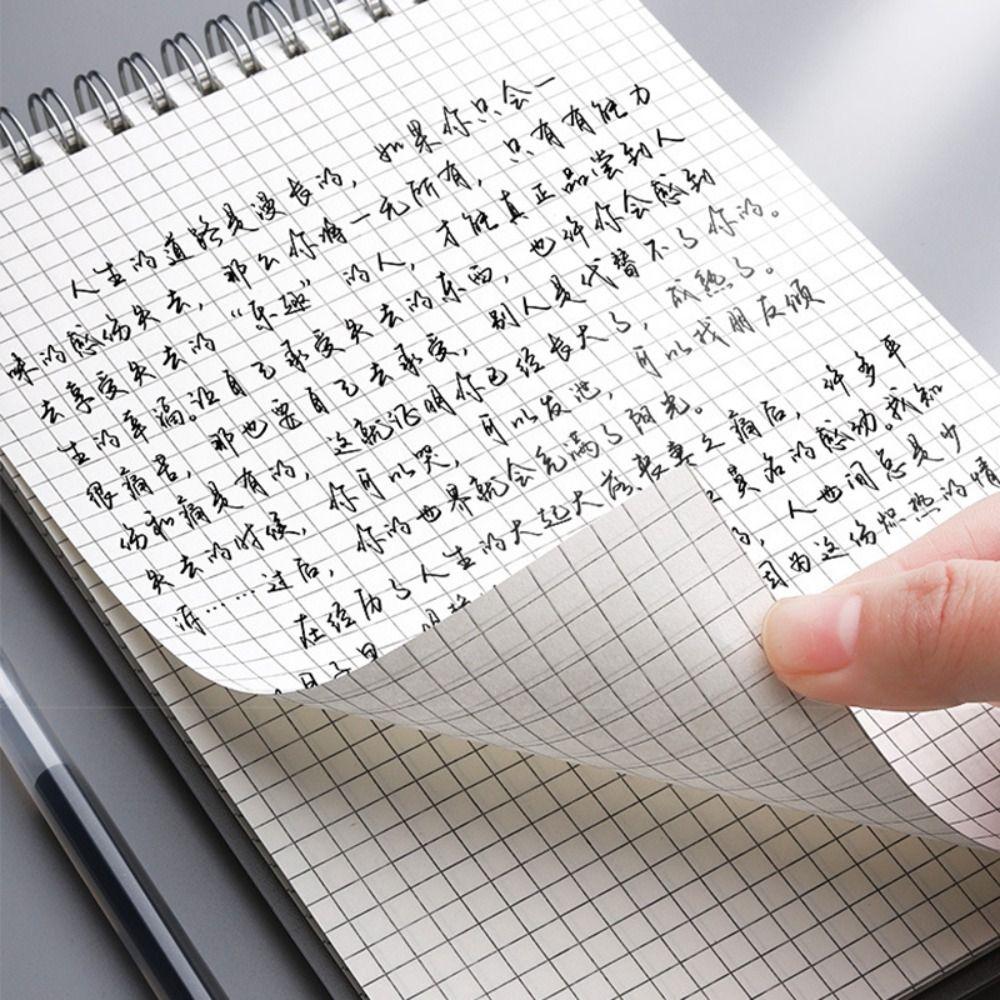 人生的道路是漫长的，如果你只会一
味的感伤失去，那么你将一无所有，只有有能力
去享受失去的“乐趣”的人，才能真正品尝到人
生的幸福。没自己承受失去的东西，也许你会感到
很痛苦，那也要自己去承受，别人是代替不了你的。
伤和痛是有的，这就证明你已经长大了，成熟了。
失去的时候，你可以哭，可以发泄，可以找朋友倾
诉……过后，你的世界就会充满了阳光。
在经历了人生的大起大落哀莫之痛后，许多平
莫名的感动。我知
人世间总是少
因为这份炽热的情